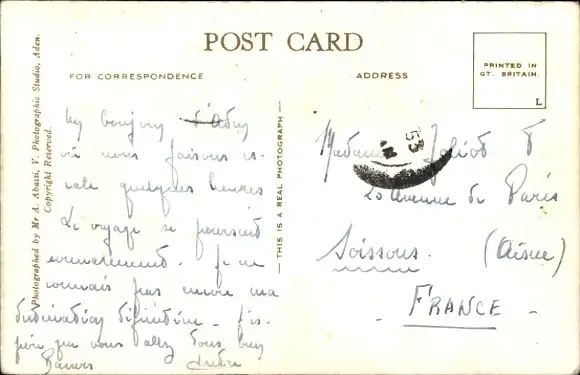 POST CARD
FOR CORRESPONDENCE
ADDRESS
PRINTED IN
GT. BRITAIN.
L
Photographed by Mr A. Abassi, V. Photographic Studio, Aden.
Copyright Reserved.
THIS IS A REAL PHOTOGRAPH
Un bonjour d'Aden
où nous faisons es-
cale quelques heures
Le voyage se poursuit
normalement. Je ne
connais pas encore ma
destination définitive - J'es-
père que vous allez tous bien
Baisers
Madame
20 Avenue de Paris
Soissons. (Aisne)
- FRANCE -
53